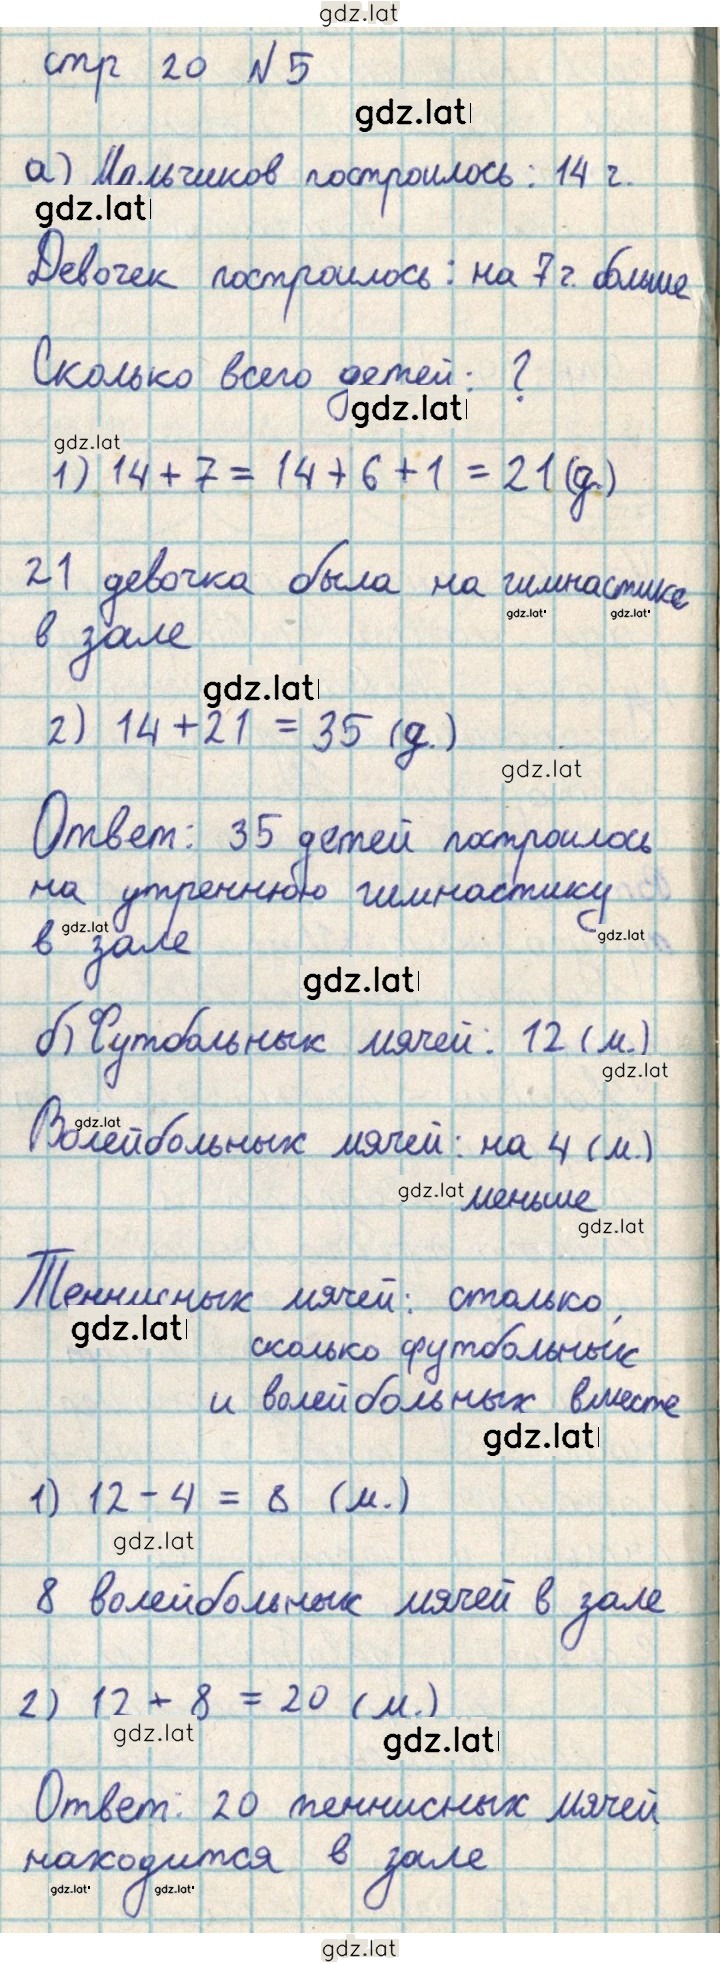 gdz.lat
стр 20 №5
gdz.lat
а) Мальчиков построилось: 14 г.
gdz.lat
Девочек построилось: на 7 г. больше
Сколько всего детей: ?
gdz.lat
gdz.lat
1) 14 + 7 = 14 + 6 + 1 = 21 (д.)
21 девочка была на гимнастике
gdz.lat gdz.lat
в зале
gdz.lat
2) 14 + 21 = 35 (д.)
gdz.lat
Ответ: 35 детей построилось
на утреннюю гимнастику
gdz.lat gdz.lat
в зале
gdz.lat
б) Футбольных мячей: 12 (м.)
gdz.lat
gdz.lat
Волейбольных мячей: на 4 (м.)
gdz.lat меньше
gdz.lat
Теннисных мячей: столько,
gdz.lat
сколько футбольных
и волейбольных вместе
gdz.lat
1) 12 - 4 = 8 (м.)
gdz.lat
8 волейбольных мячей в зале
2) 12 + 8 = 20 (м.)
gdz.lat gdz.lat
Ответ: 20 теннисных мячей
находится в зале
gdz.lat gdz.lat
gdz.lat